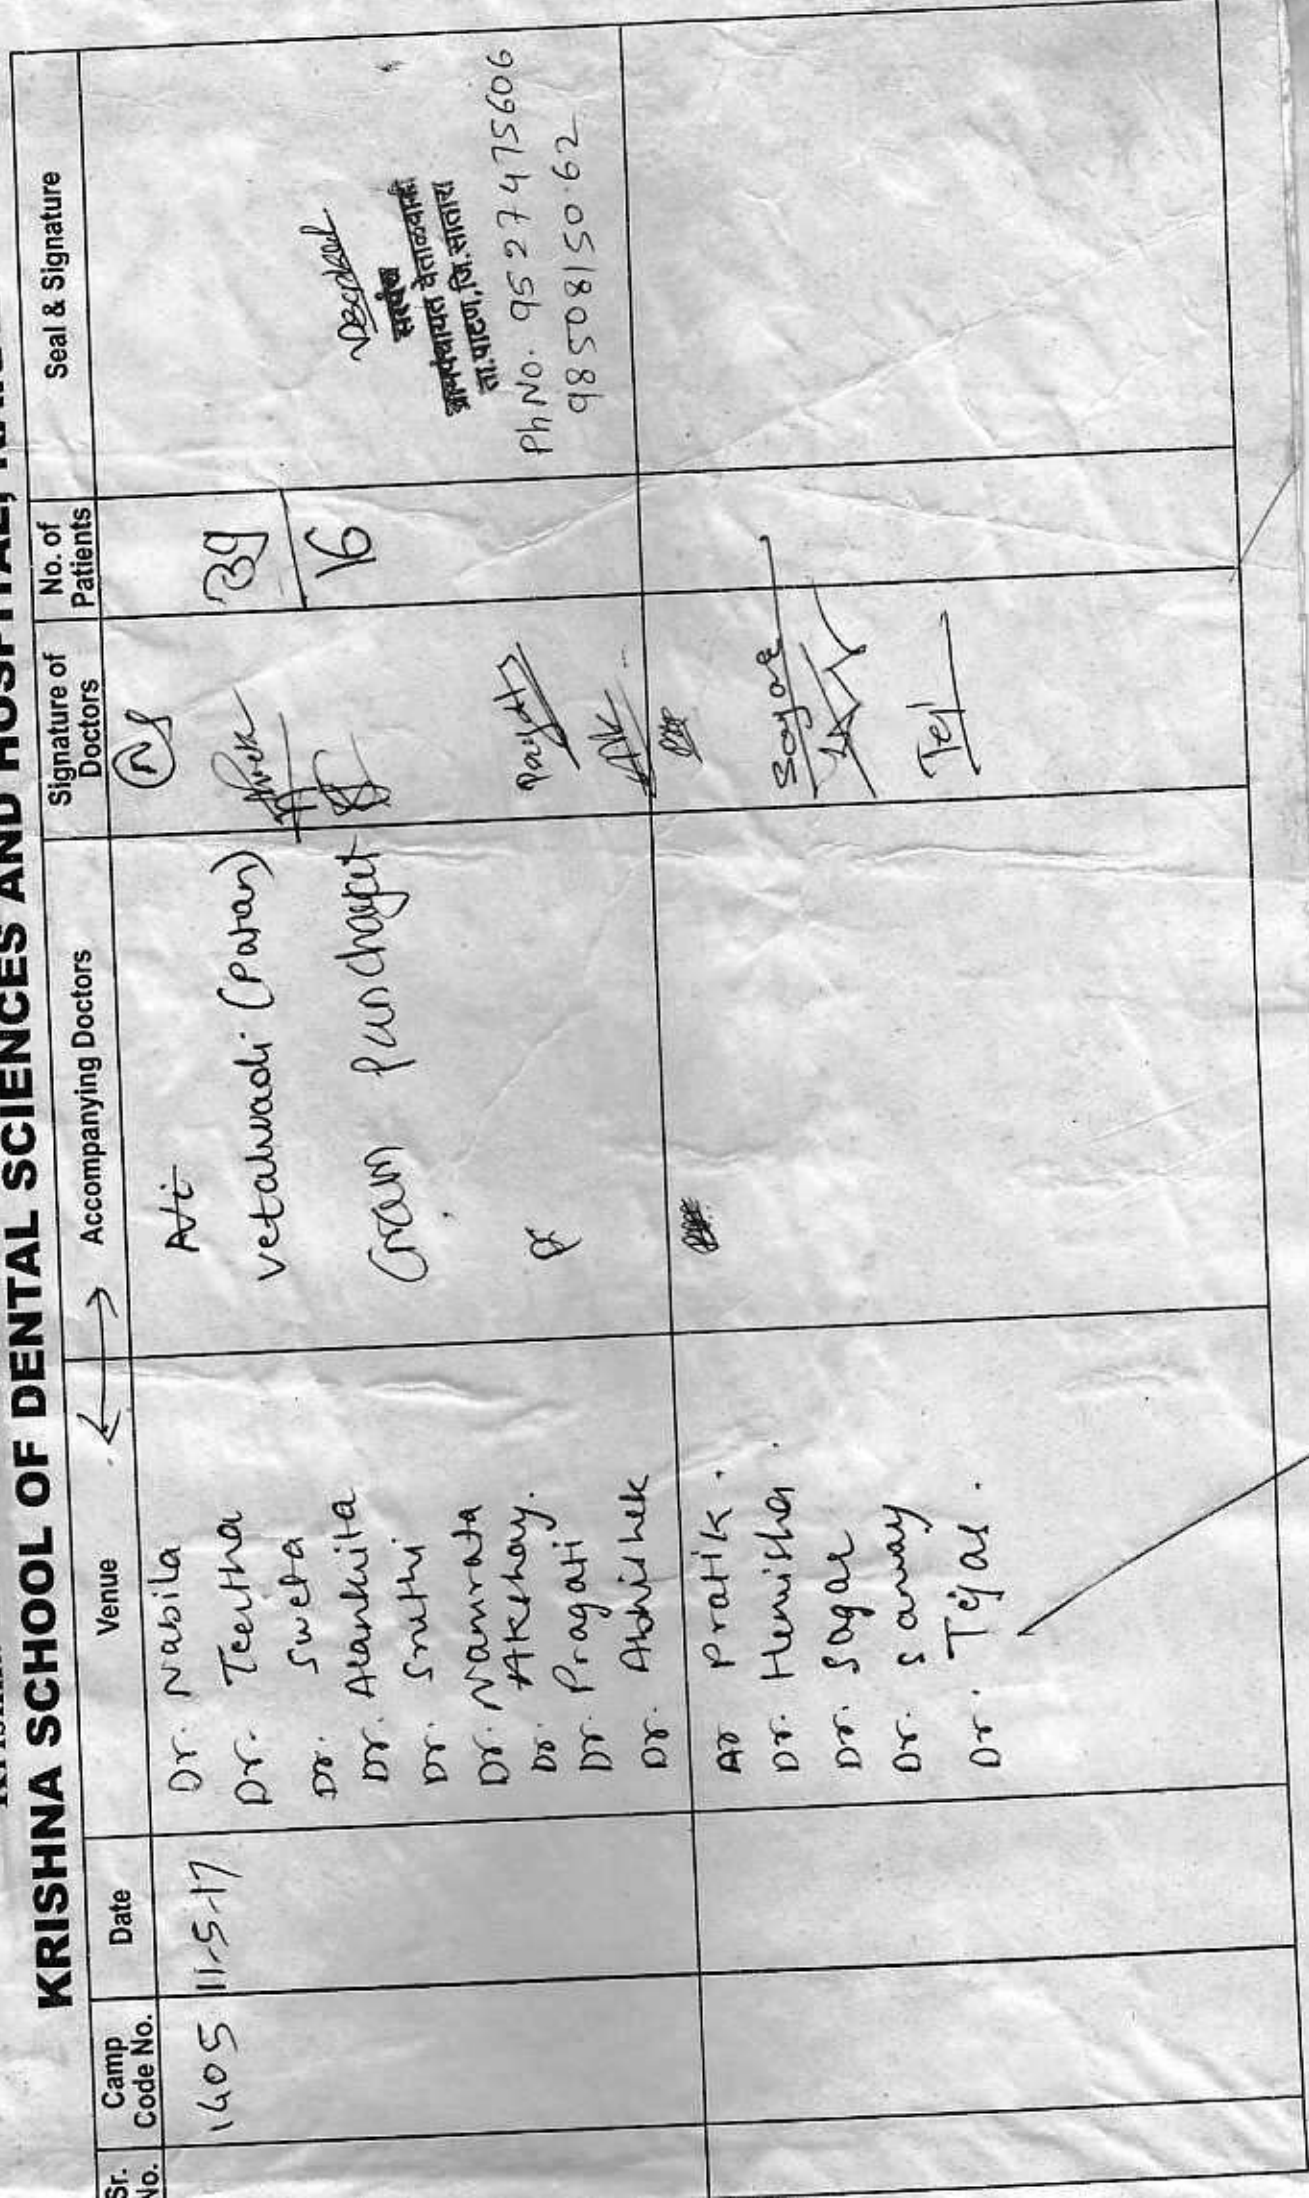 KRISHNA SCHOOL OF DENTAL SCIENCES AND HOSPITAL,
Sr. No.
Camp Code No.
Date
Venue
Accompanying Doctors
Signature of Doctors
No. of Patients
Seal & Signature
1405
11-5-17
Dr. Nabila
Dr. Teertha
Dr. Sweta
Dr. Alankrita
Dr. Sruthi
Dr. Namrata
Dr. Akshay.
Dr. Pragati
Dr. Abhishek
At:-
Vetalwadi (Patan)
Gram panchayat
39
16
सरपंच
ग्रामपंचायत वेताळवाडी
ता.पाटण, जि.सातारा
PhNo. 9527475606
9850815062
Pragati
Dr Pratik.
Dr. Hemisha.
Dr. Sagar
Dr. Sanway
Dr. Tejal.
Sagar
Tej